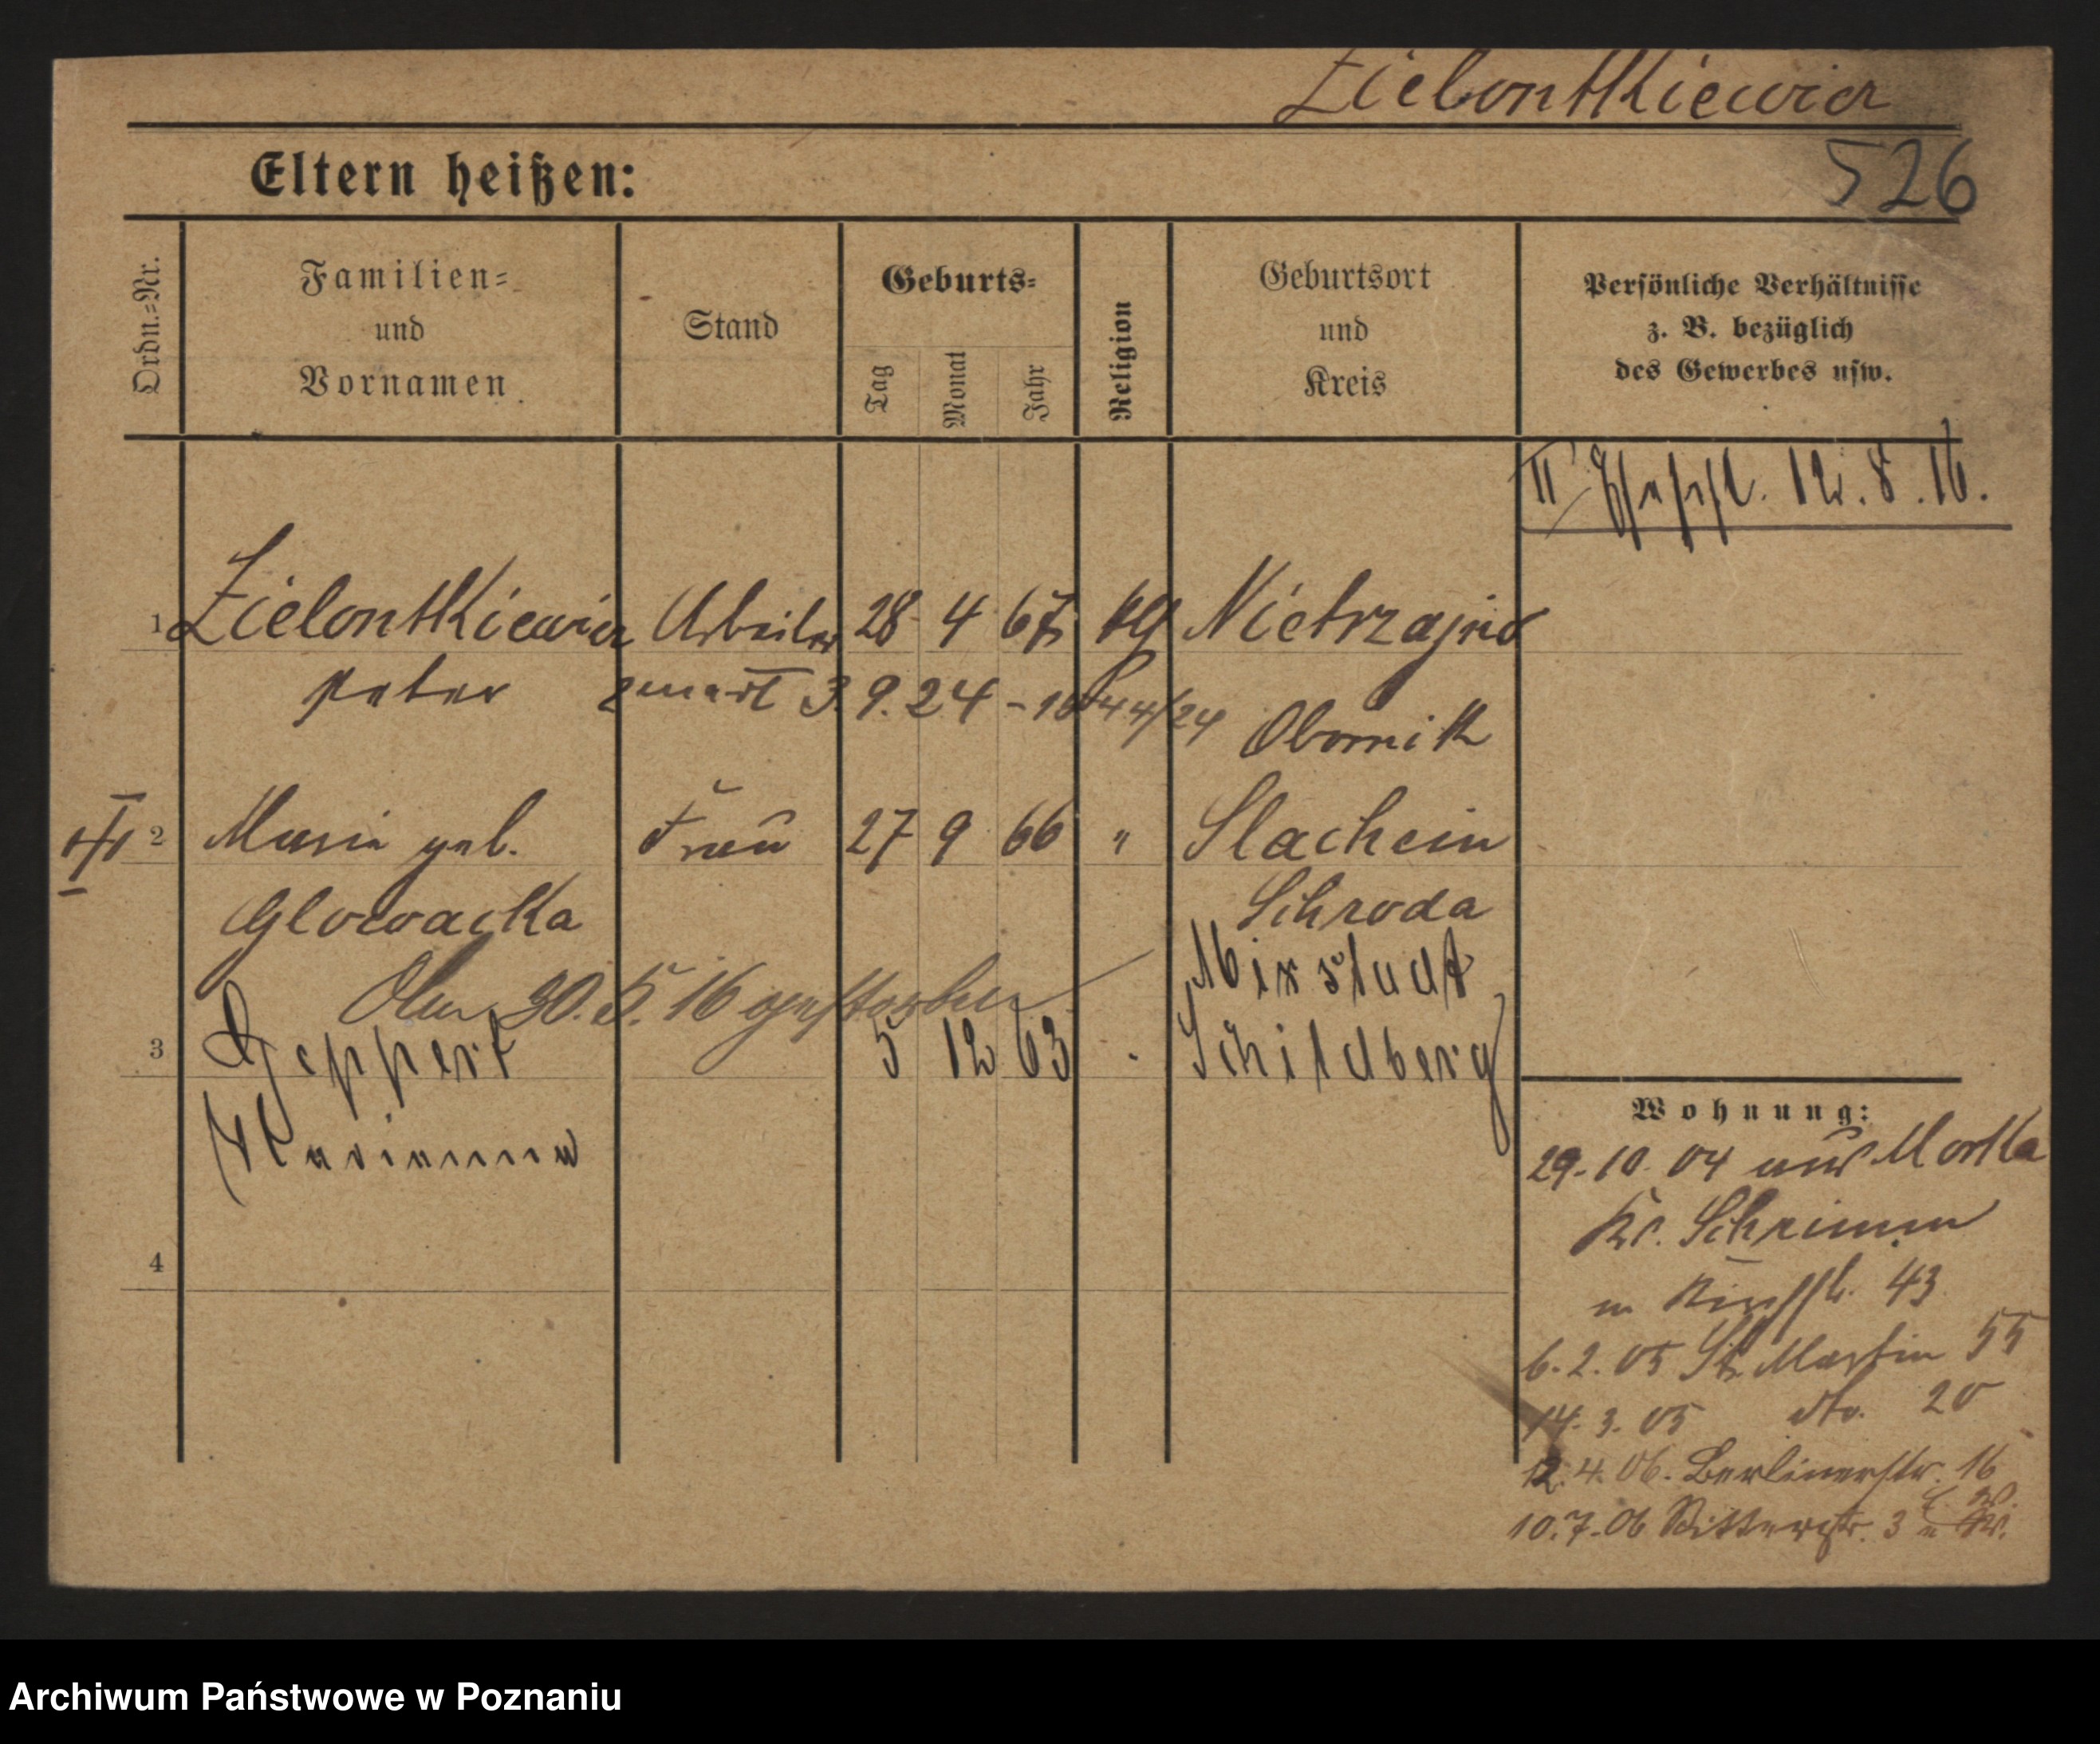 Zielontkiewicz
526
Eltern heißen:
Ordn.=Nr.
Familien=
und
Vornamen
Stand
Geburts=
Tag
Monat
Jahr
Religion
Geburtsort
und
Kreis
Persönliche Verhältnisse
z. B. bezüglich
des Gewerbes usw.
II 12. 8. 16.
1 Zielontkiewicz Arbeiter 28 4 67 kg Nietrzajno
Peter zmarł 3.9.24 - Obornik
2 Maria geb. Frau 27 9 66 " Slachcin
Glowacka Schroda
Am 30.5.16 gestorben Mixstadt
3 Geppert 5 12 63 Schildberg
Marianna
4
Wohnung:
29.10.04 aus Morka
Kr. Schrimm
43
6.2.05 St. Martin 55
14.3.05 dto. 20
12.4.06. Berlinerstr. 16
10.7.06 Ritterstr. 3
Archiwum Państwowe w Poznaniu